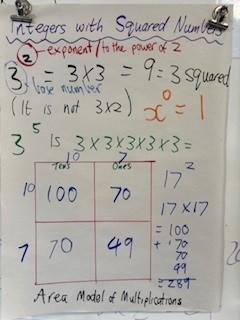 Integers with Squared Numbers
② exponent/to the power of 2
3 = 3×3 = 9 = 3 squared
base number
(It is not 3×2) x⁰ = 1
3⁵ Is 3×3×3×3×3=
10 7
Tens Ones
10 100 70
7 70 49
17²
17×17
= 100
+ 70
70
49
= 289
Area Model of Multiplications